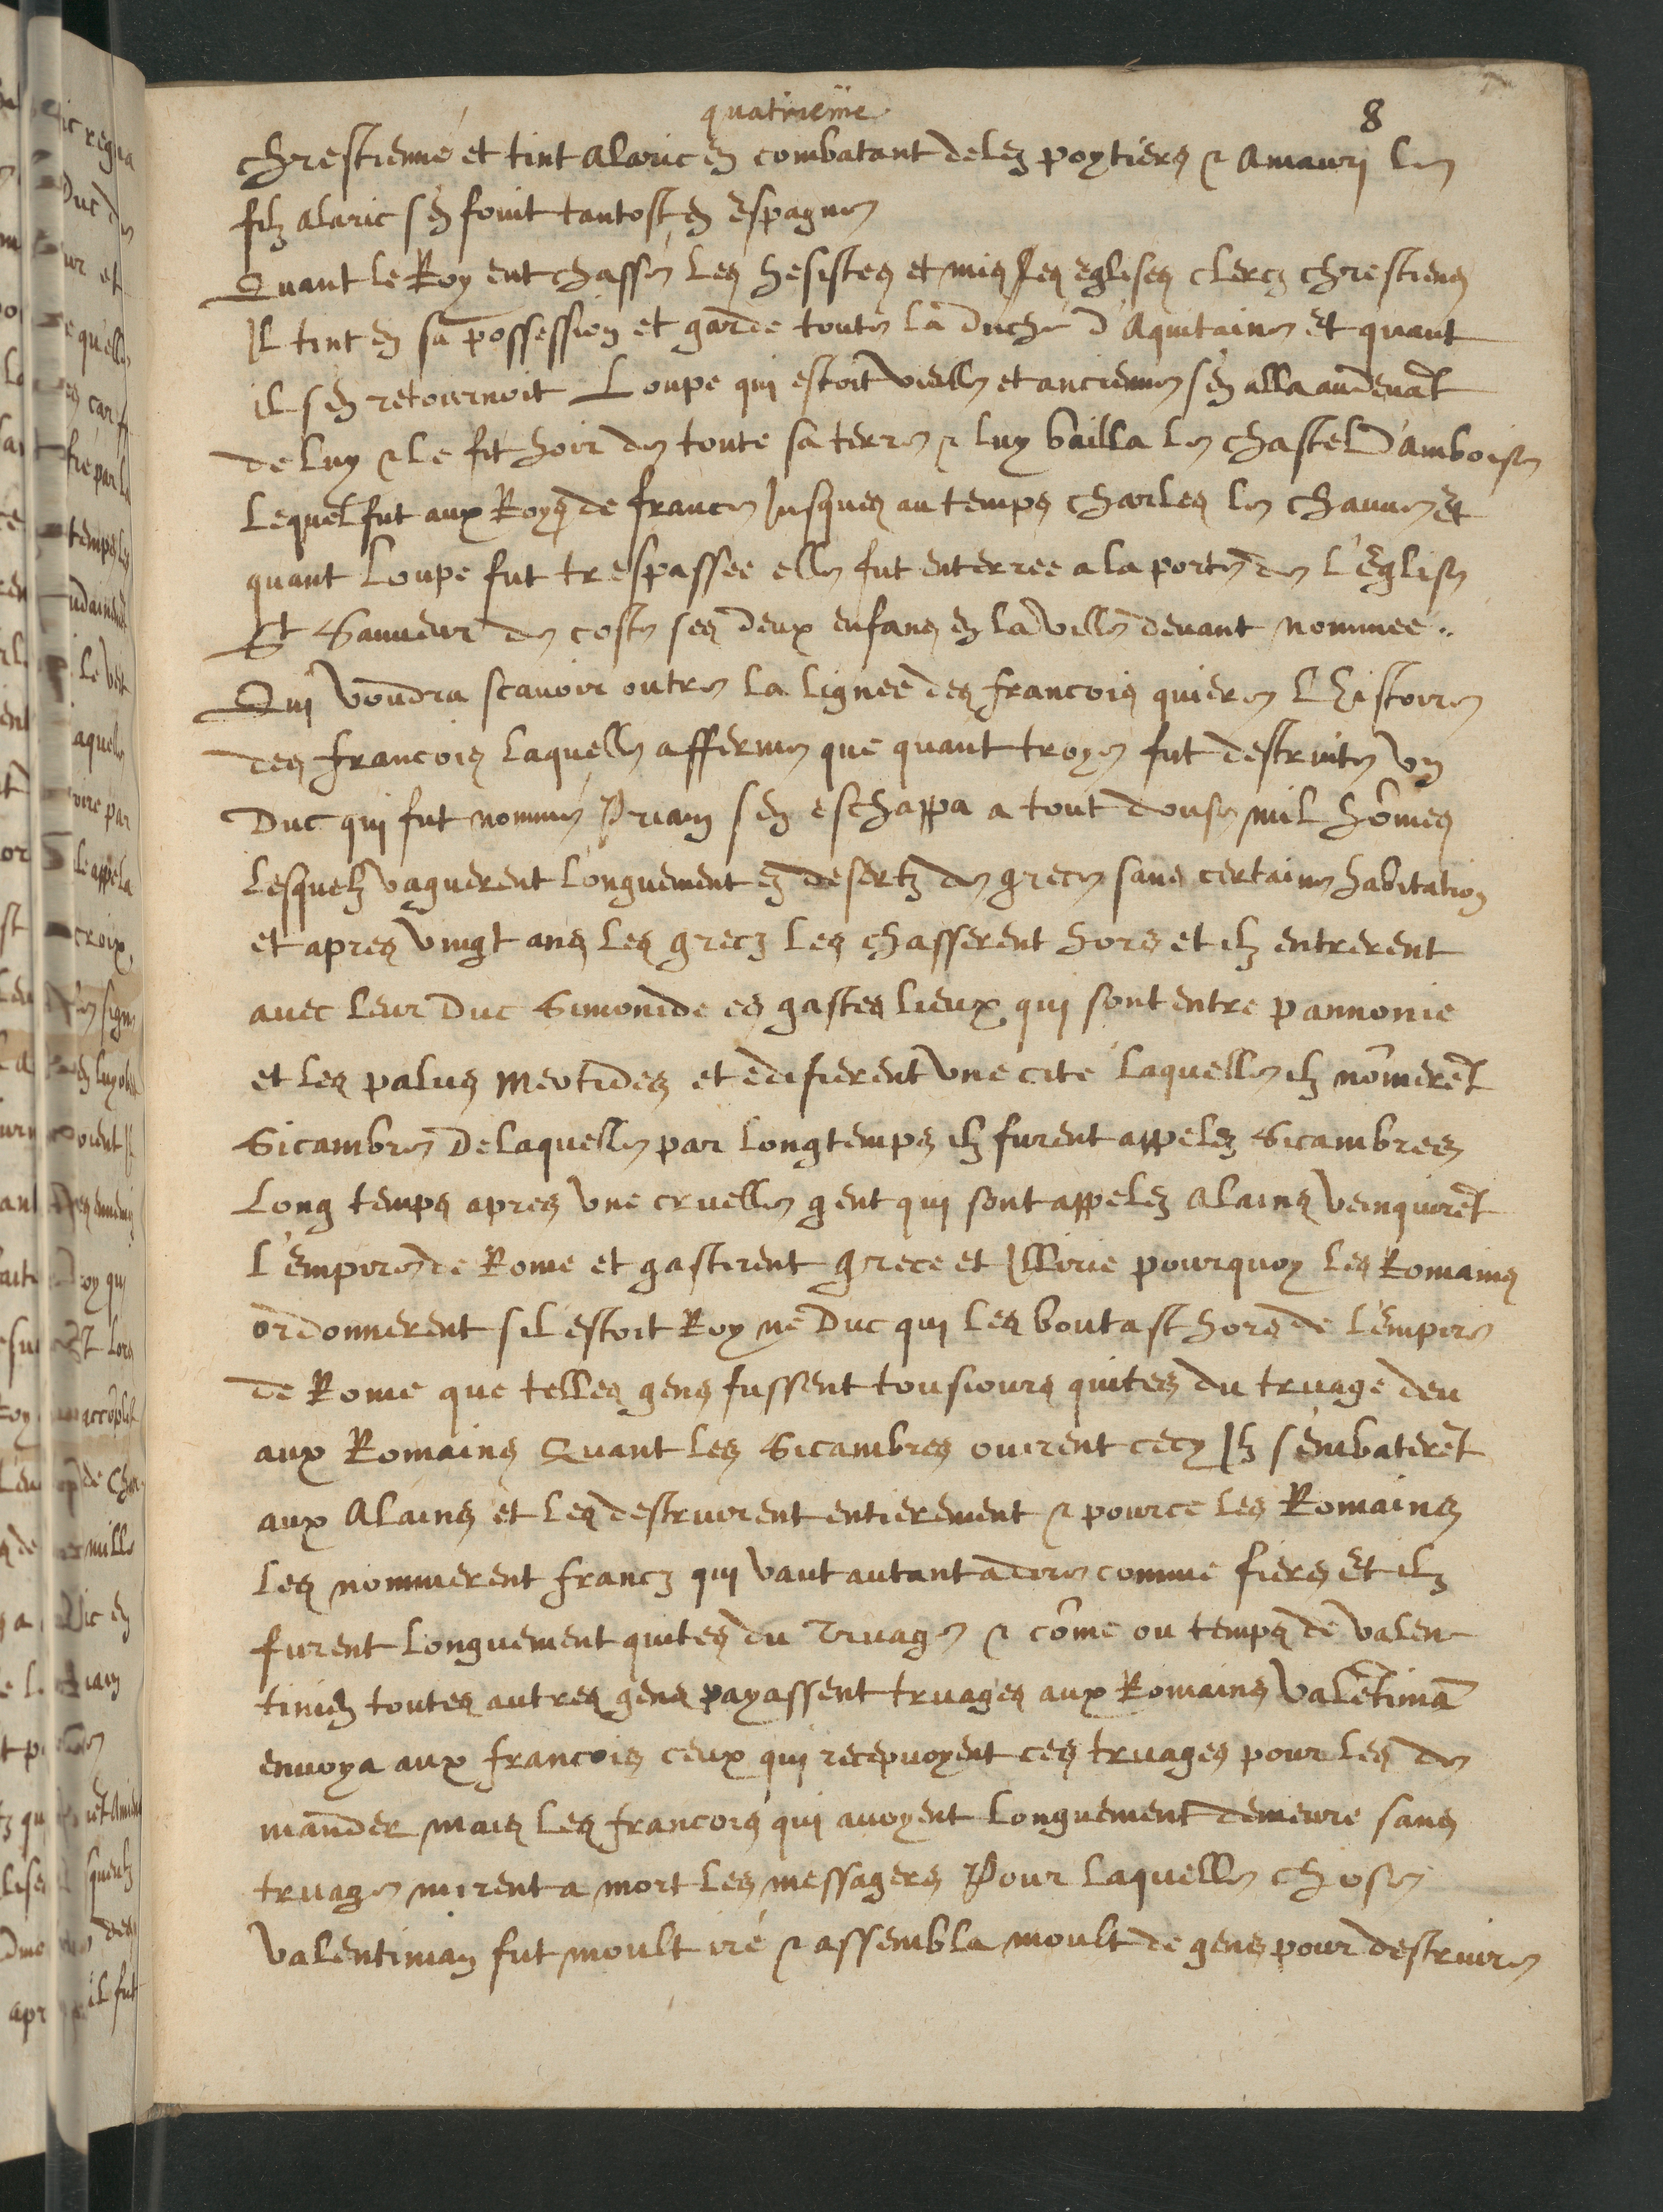 quatrieme
8
chrestienne et tint Alaric en combatant delez poytiers & Amauri le
filz Alaric s'en fouit tantost en Espagne
Quant le Roy eut chassé les hesistes et mis les eglises clercz chrestiens
Il tint en sa possession et garde toute la duché d'Aquitaine Et quant
il s'en retournoit Loupe qui estoit vielle et ancienne s'en alla audevāt
de luy & le fit hoir de toute sa terre & luy bailla le chastel D'amboise
Lequel fut aux Roys de france Jusques au temps Charles le chauve Et
quant Loupe fut trespassee elle fut enterree a la porte de L'Eglise
St Sauveur de coste ses deux enfans en la ville devant nommee..
Qui voudra scavoir outre la lignee des francois quiere L'histoire
des francois laquelle afferme que quant troye fut destruite un
Duc qui fut nommé Priam s'en eschappa a tout douse mil hōmes
Lesquelz vaguerent longuement es desertz de grece sans certaine habitation
et apres vingt ans les grecz les chasserent hors et ilz entrerent
avec leur Duc Simonide es gastes lieux qui sont entre pannonie
et les palus meotides et edifierent une cité laquelle ilz nōmerēt
Sicambre De laquelle par long temps ilz furent appelez Sicambres
Long temps apres une cruelle gent qui sont appelez Alains veinquirēt
L'empire de Rome et gasterent Grece et Illirie pourquoy les Romains
ordonnerent s'il estoit Roy ne Duc qui les boutast hors de l'empire
de Rome que telles gens fussent tousiours quites du truage deu
aux Romains Quant les Sicambres ouirent cecy Ilz s'embaterēt
aux Alains et les destruirent entierement & pource les Romains
les nommerent francz qui vaut autant a dire comme fiers Et ilz
furent longuement quites du Truage & cōme ou temps de valen
tinien toutes autres gens payassent truages aux Romains Valētiniā
envoya aux francois ceux qui recepvoyent ces truages pour les de
mander mais les francois qui avoyent longuement demeure sans
truage mirent a mort les messagers Pour laquelle chose
Valentinian fut moult iré & assembla moult de gens pour destruire